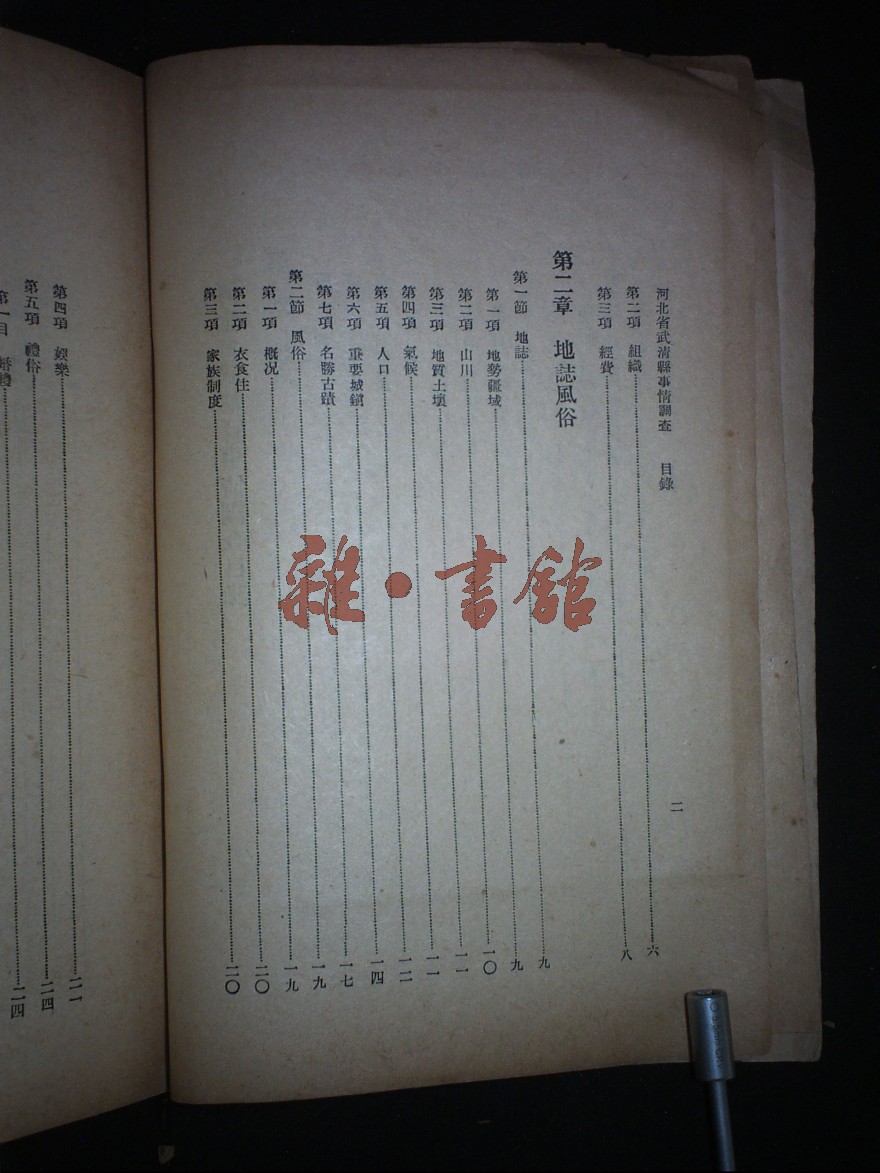 河北省武清縣事情調查 目錄 二
第二項 組織……六
第三項 經費……八
第二章 地誌風俗
第一節 地誌……九
第一項 地勢疆域……九
第二項 山川……一〇
第三項 地質土壤……一一
第四項 氣候……一一
第五項 人口……一二
第六項 重要城鎮……一四
第七項 名勝古蹟……一七
第二節 風俗……一九
第一項 概況……一九
第二項 衣食住……二〇
第三項 家族制度……二〇
第四項 娛樂……二一
第五項 禮俗……二四
第一目 婚禮……二四
雜·書館